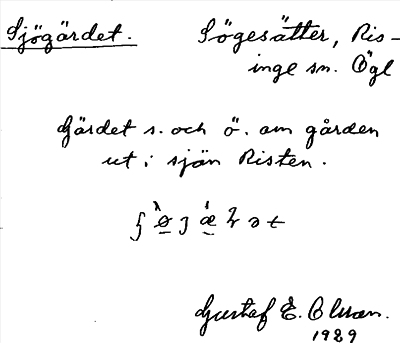 Sjögärdet. Sögesätter, Ris-
inge sn. Ögl
Gärdet s. och ö. om gården
ut i sjön Risten.
Gustaf E. Olsson.
1929